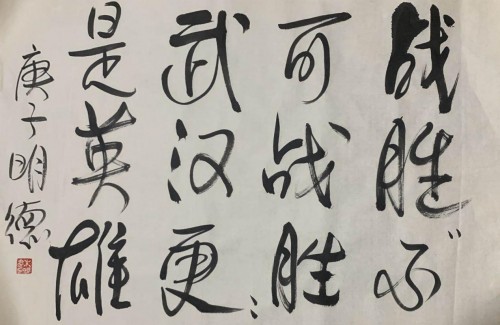 战胜不
可战胜
武汉更
是英雄
庚子明德